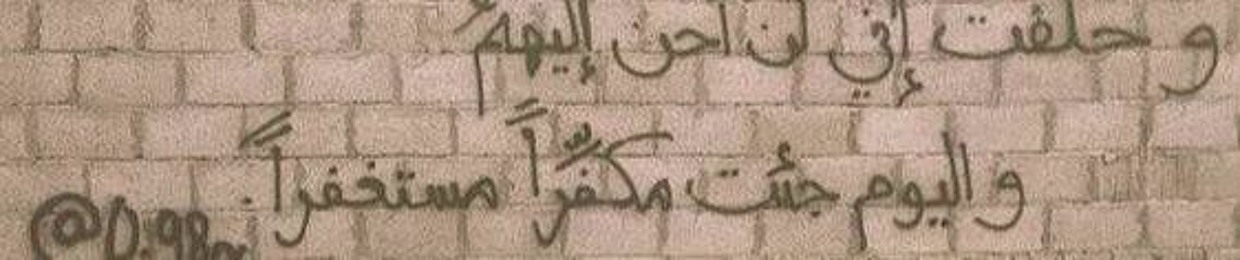 و حلفت إني لن أحن إليهم
و اليوم جئت مكفّراً مستغفراً.
@0.98m